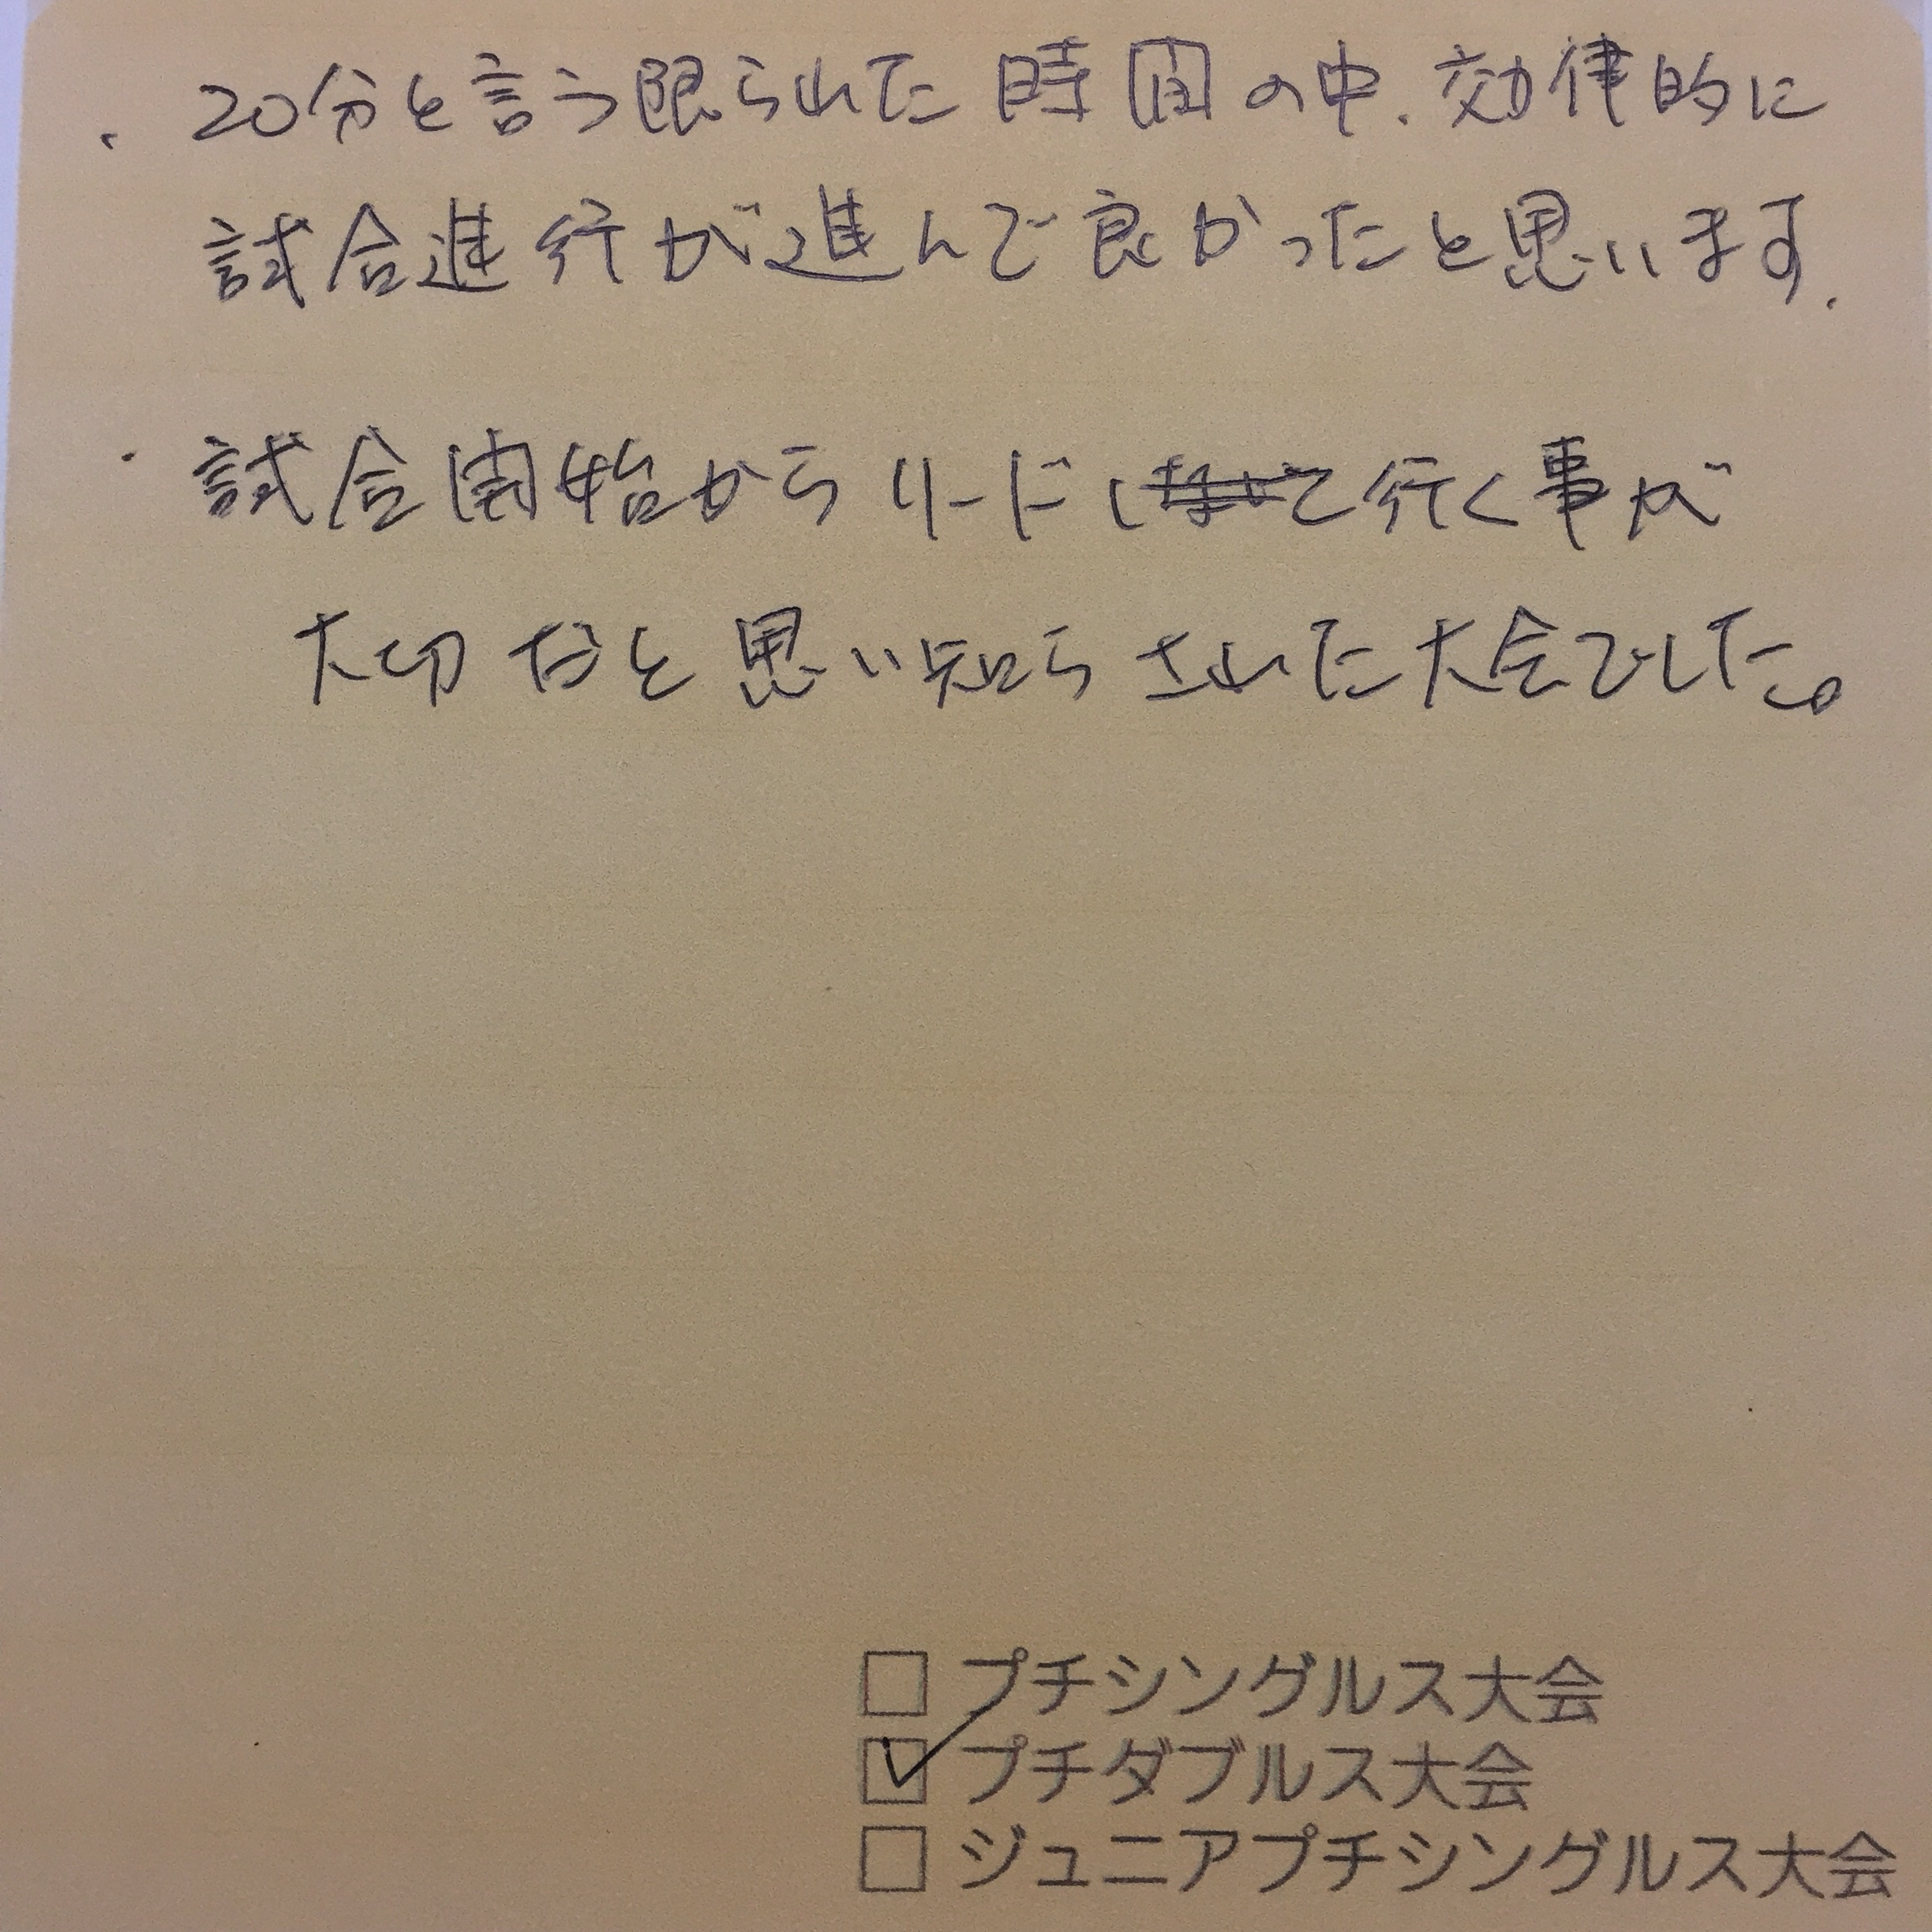 ・20分と言う限られた時間の中、効律的に
試合進行が進んで良かったと思います。
・試合開始からリードして行く事が
大切だと思い知らされた大会でした。
□ プチシングルス大会
☑ プチダブルス大会
□ ジュニアプチシングルス大会